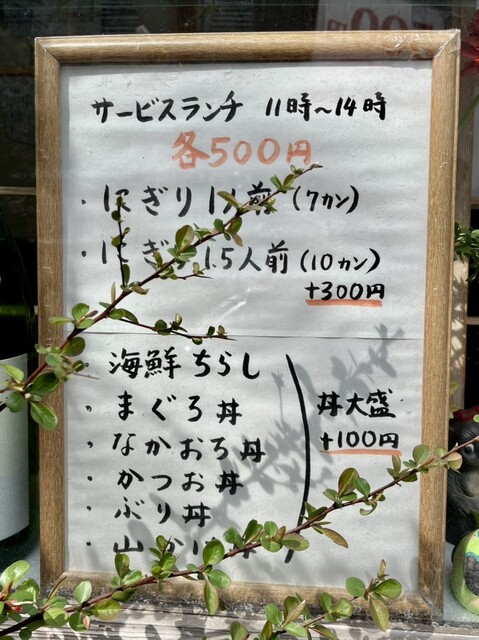 サービスランチ 11時～14時
各500円
・にぎり1人前(7カン)
・にぎり1.5人前(10カン)
+300円
・海鮮ちらし
・まぐろ丼
・なかおち丼
・かつお丼
・ぶり丼
・山かけ
丼大盛
+100円